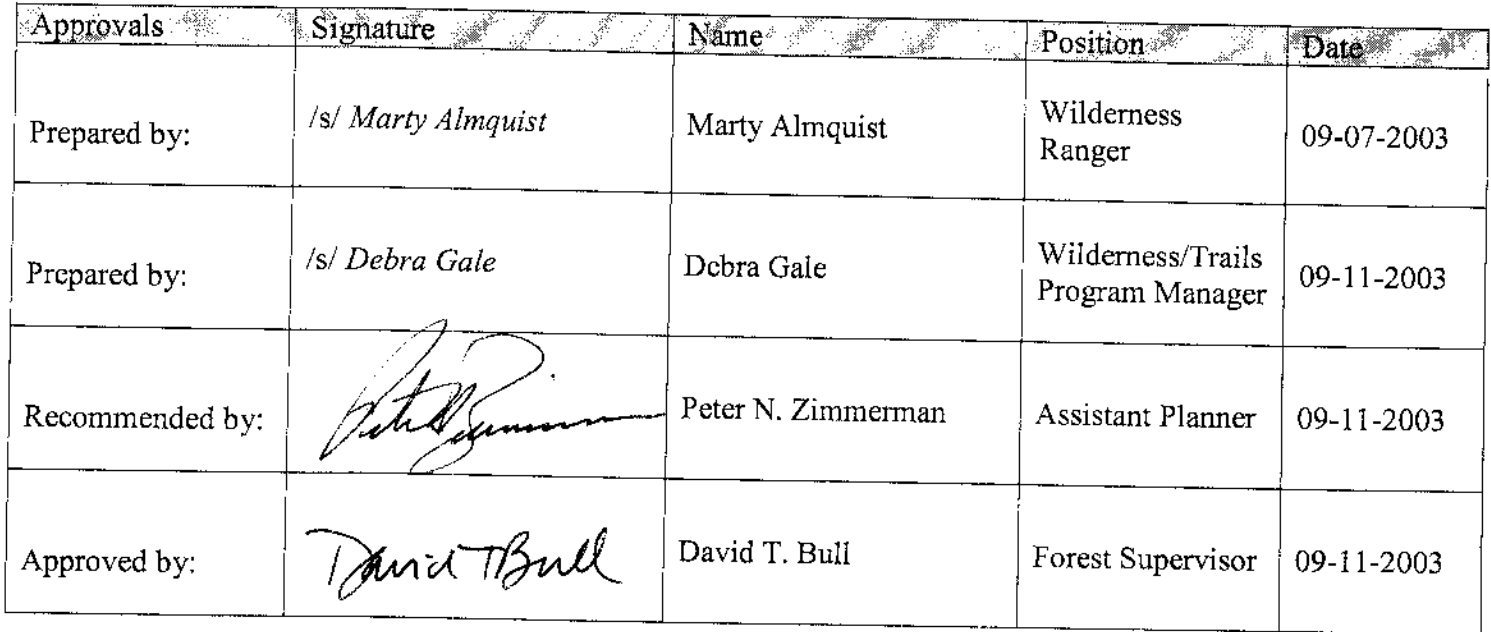 Approvals Signature Name Position Date
Prepared by: /s/ Marty Almquist Marty Almquist Wilderness Ranger 09-07-2003
Prepared by: /s/ Debra Gale Debra Gale Wilderness/Trails Program Manager 09-11-2003
Recommended by: Peter N. Zimmerman Assistant Planner 09-11-2003
Approved by: David T Bull David T. Bull Forest Supervisor 09-11-2003